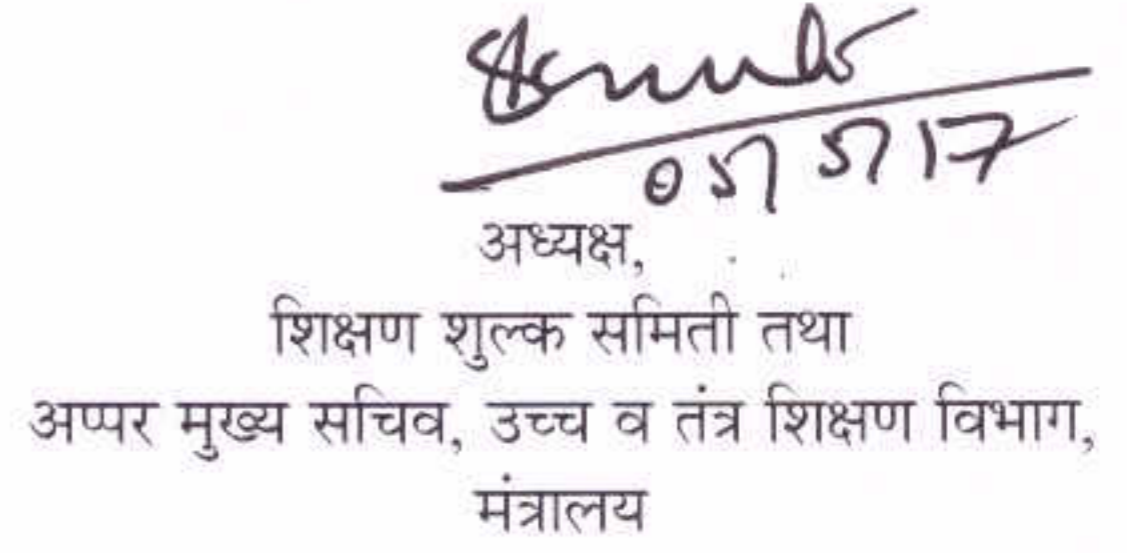 05/5/17
अध्यक्ष,
शिक्षण शुल्क समिती तथा
अप्पर मुख्य सचिव, उच्च व तंत्र शिक्षण विभाग,
मंत्रालय